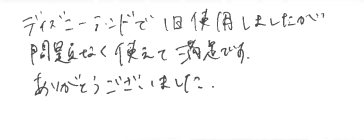 ディズニーランドで1回使用しましたが
問題なく使えて満足です.
ありがとうございました.